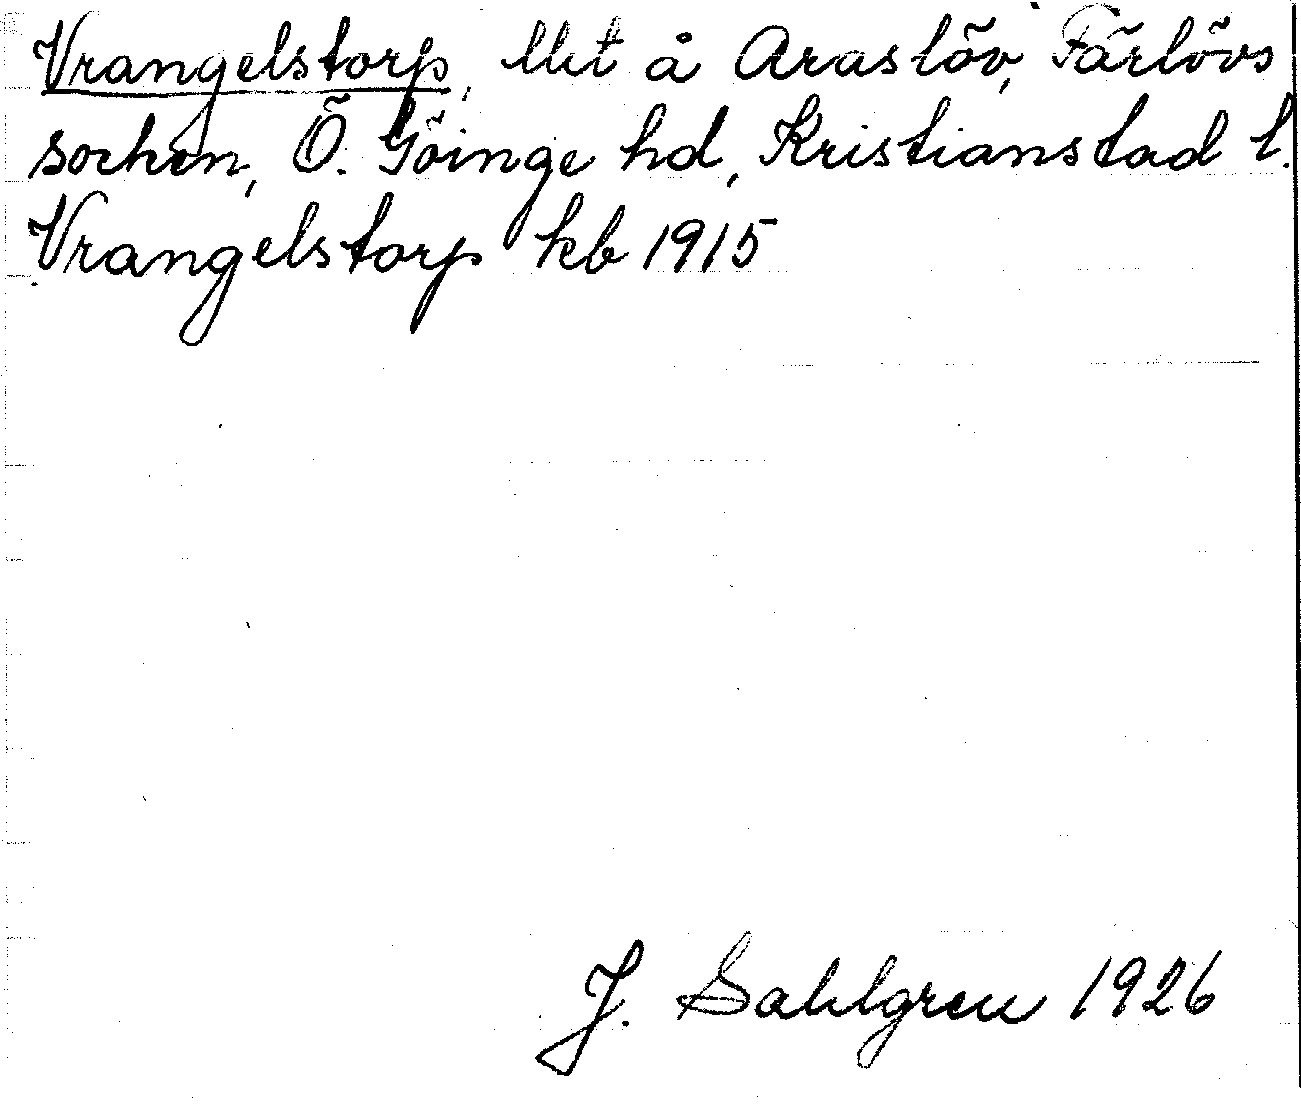 Vrangelstorp, llht å Araslöv, Färlövs
socken, Ö. Göinge hd, Kristianstad l.
Vrangelstorp kb 1915
J. Sahlgren 1926